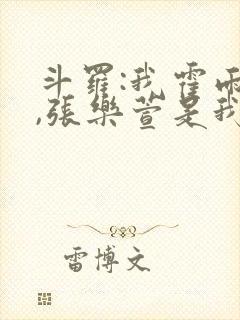 斗羅:我霍雨
,張樂萱是我
雷博文